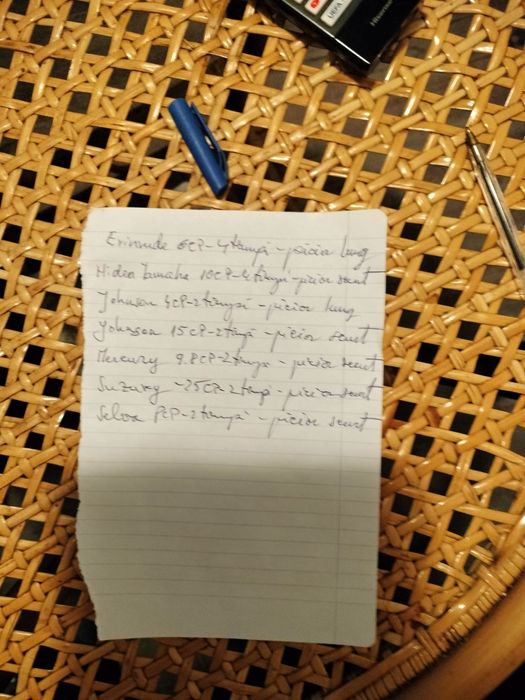 Hisense
UEFA
Evinrude 6CP-4timpi - picior lung
Hidea Yamaha 10CP-4timpi - picior scurt
Johnson 4CP-2timpi - picior lung
Johnson 15CP-2timpi - picior scurt
Mercury 9.8CP-2timpi - picior scurt
Suzuky -25CP-2timpi - picior scurt
Selva 8CP-2timpi - picior scurt